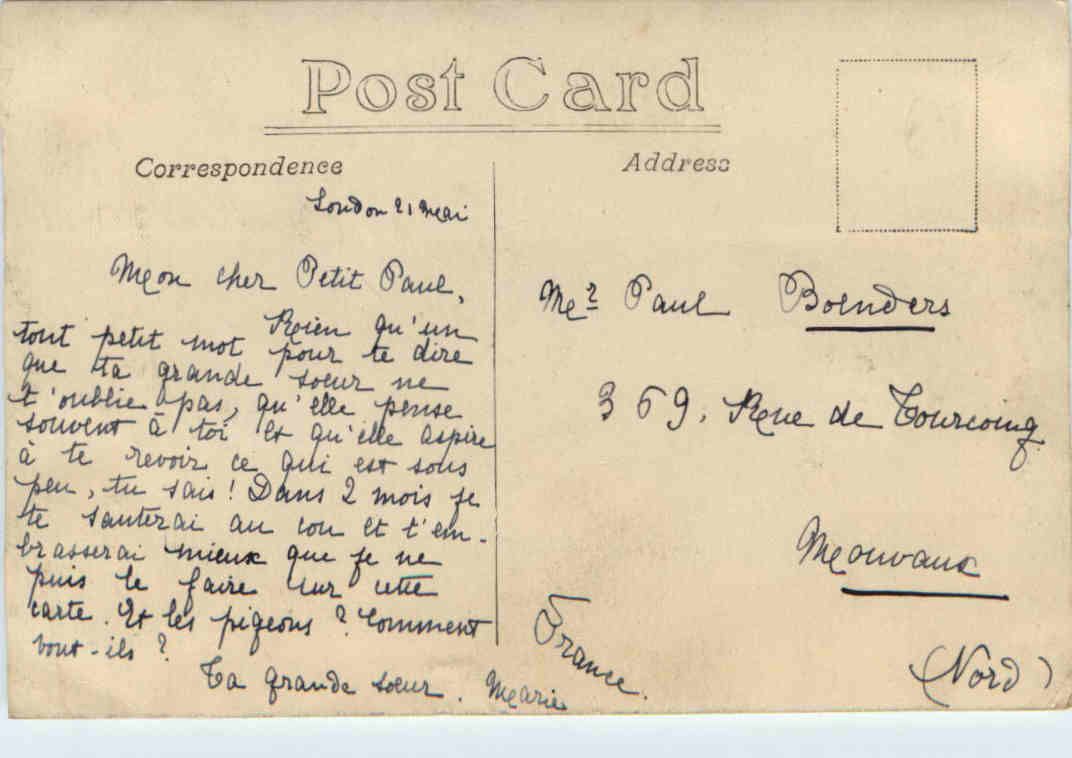 Post Card
Correspondence
Address
London 21 Mai
Mon cher Petit Paul,
Rien qu'un
tout petit mot pour te dire
que ta grande soeur ne
t'oublie pas, qu'elle pense
souvent à toi et qu'elle aspire
à te revoir ce qui est sous
peu, tu sais! Dans 2 mois je
te sauterai au cou et t'em-
brasserai mieux que je ne
puis le faire sur cette
carte. Et les pigeons? Comment
vont-ils?
Ta grande soeur. Marie
Mr Paul Boenders
369, Rue de Tourcoing
Mouvaux
(Nord)
France.